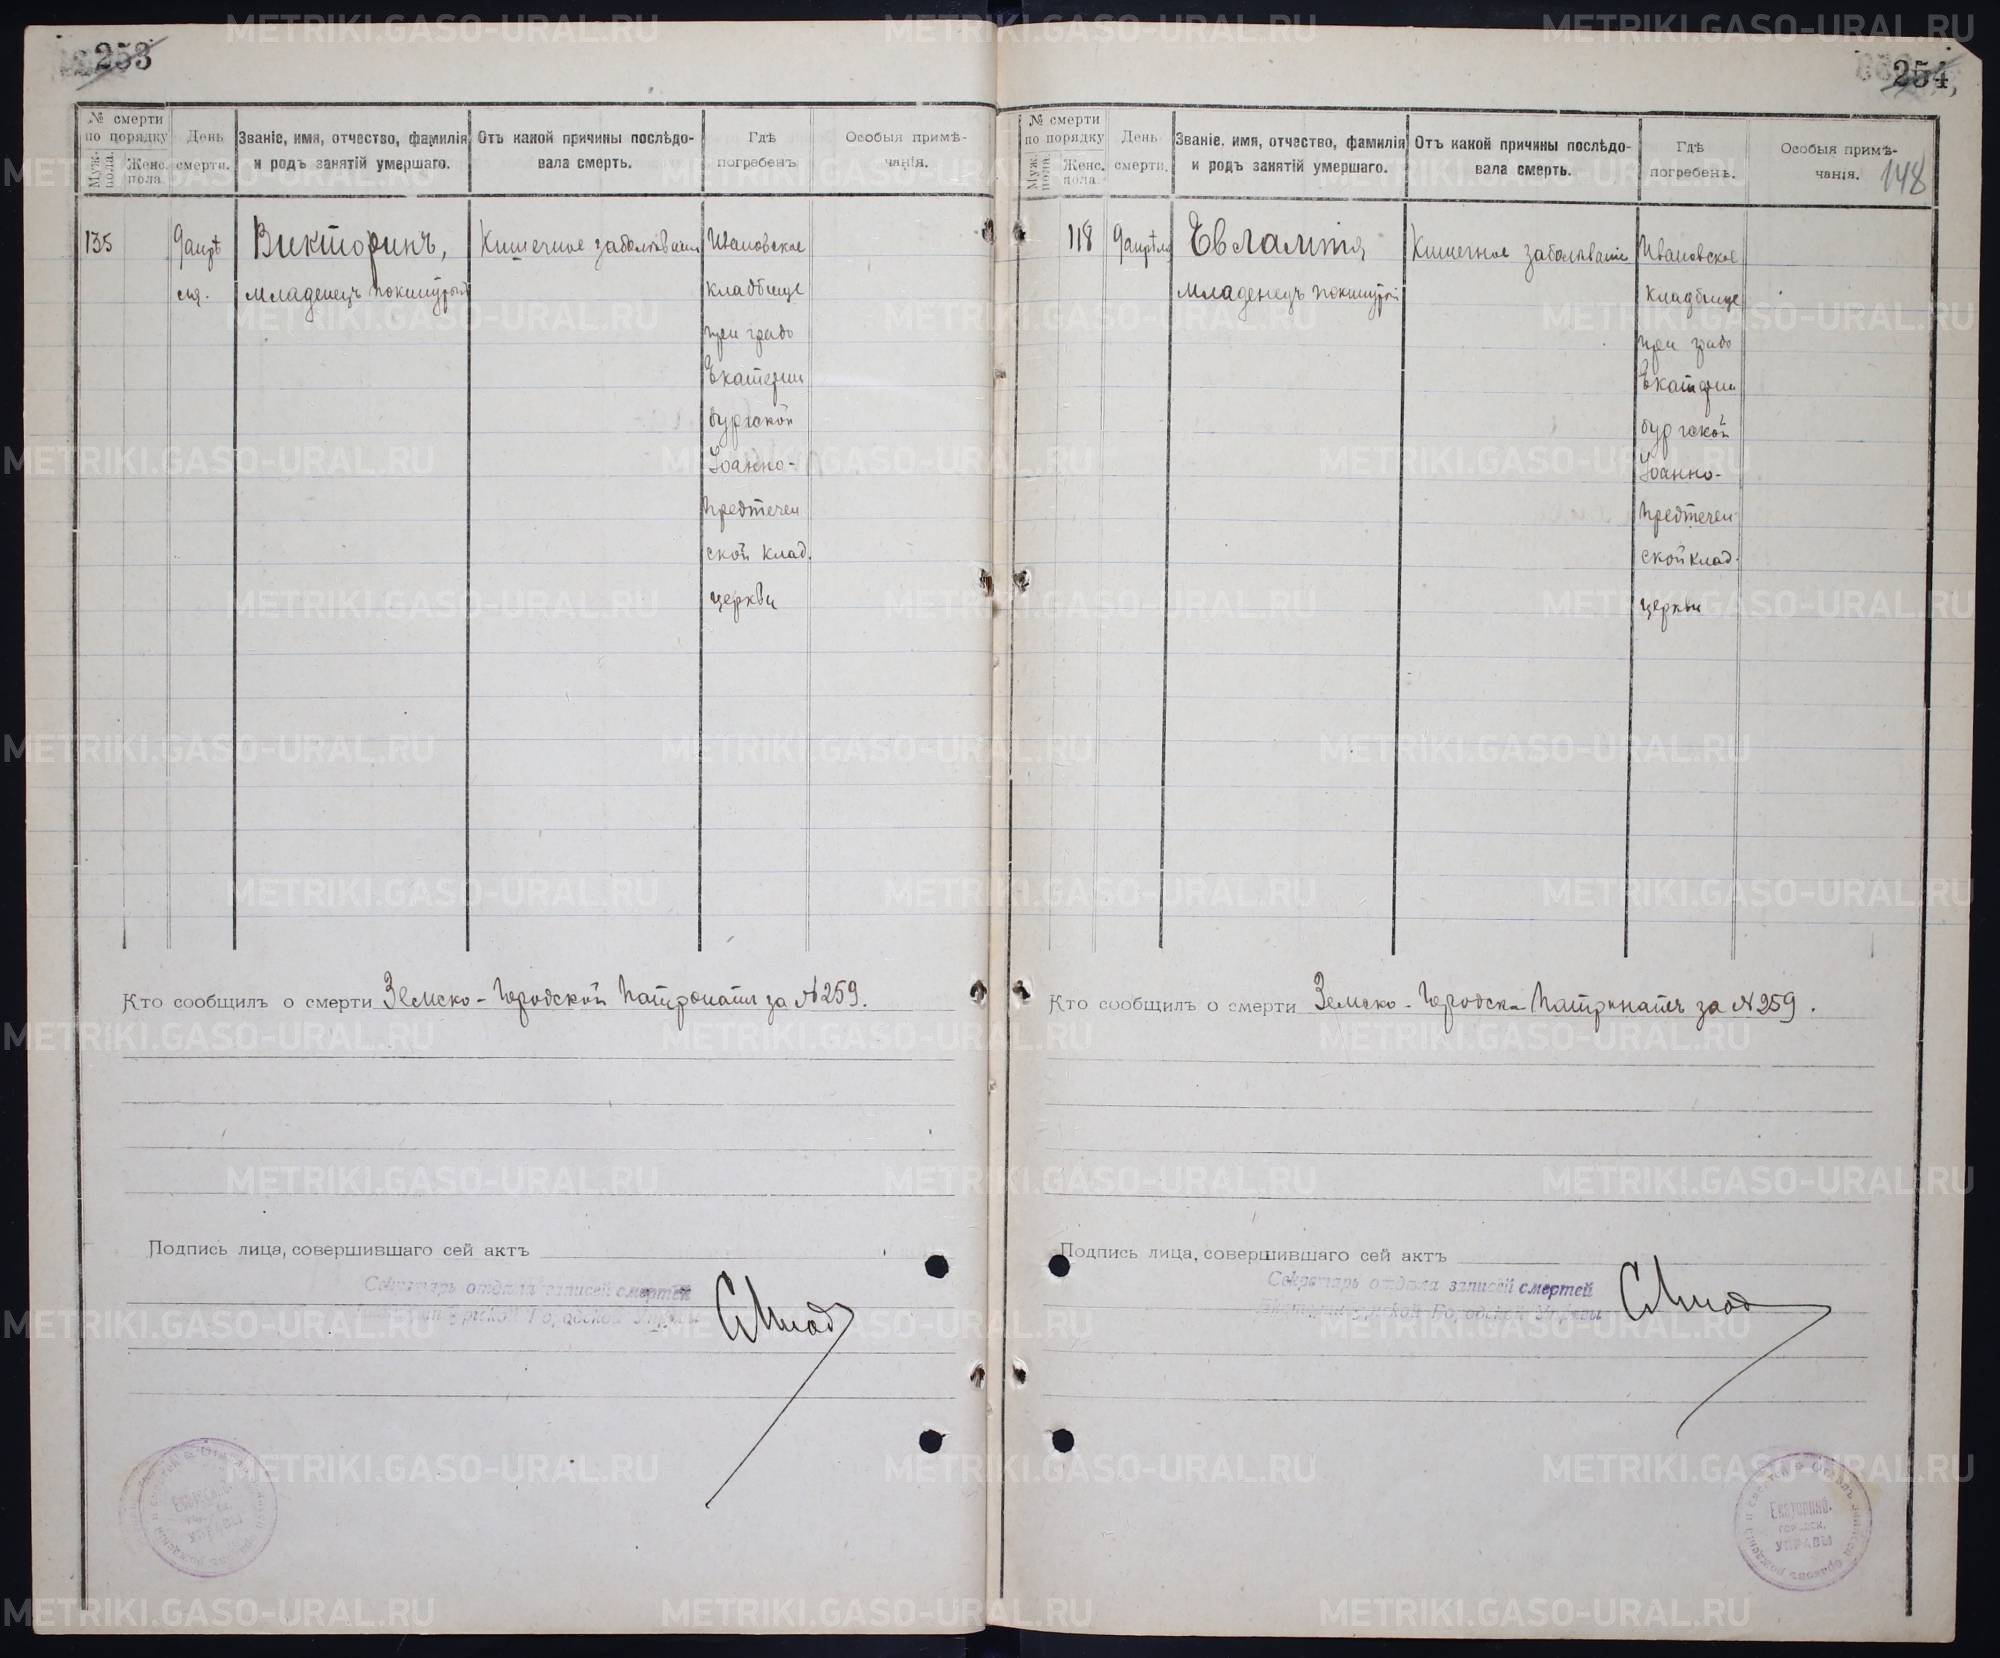 253
№ смерти
по порядку
Муж. пола.
Женс. пола
День смерти.
Званіе, имя, отчество, фамилія
и родъ занятій умершаго.
Отъ какой причины послѣдо-
вала смерть.
Гдѣ
погребенъ
Особыя примѣ-
чанія.
135
9 апрѣ
ля.
Викторинъ,
младенецъ покинутый
Кишечное заболѣваніе
Ивановское
кладбище
при градо
Екатерин
бургской
Іоанно-
Предтечен
ской клад.
церкви
Кто сообщилъ о смерти Земско-Городской Патронатъ за №259.
Подпись лица, совершившаго сей актъ
Секретарь отдѣла записей смертей
Городской Управы
254
148
№ смерти
по порядку
Муж. пола.
Женс. пола.
День смерти.
Званіе, имя, отчество, фамилія
и родъ занятій умершаго.
Отъ какой причины послѣдо-
вала смерть.
Гдѣ
погребенъ.
Особыя примѣ-
чанія.
118
9 апрѣля
Евлампія
младенецъ покинутый
Кишечное заболѣваніе
Ивановское
кладбище
при градо
Екатерин
бургской
Іоанно-
Предтечен
ской клад.
церкви
Кто сообщилъ о смерти Земско-Городск Патронатъ за №259.
Подпись лица, совершившаго сей актъ
Секретарь отдѣла записей смертей
Екатеринбургской Городской Управы
Екатеринб.
городск.
УПРАВЫ
METRIKI.GASO-URAL.RU